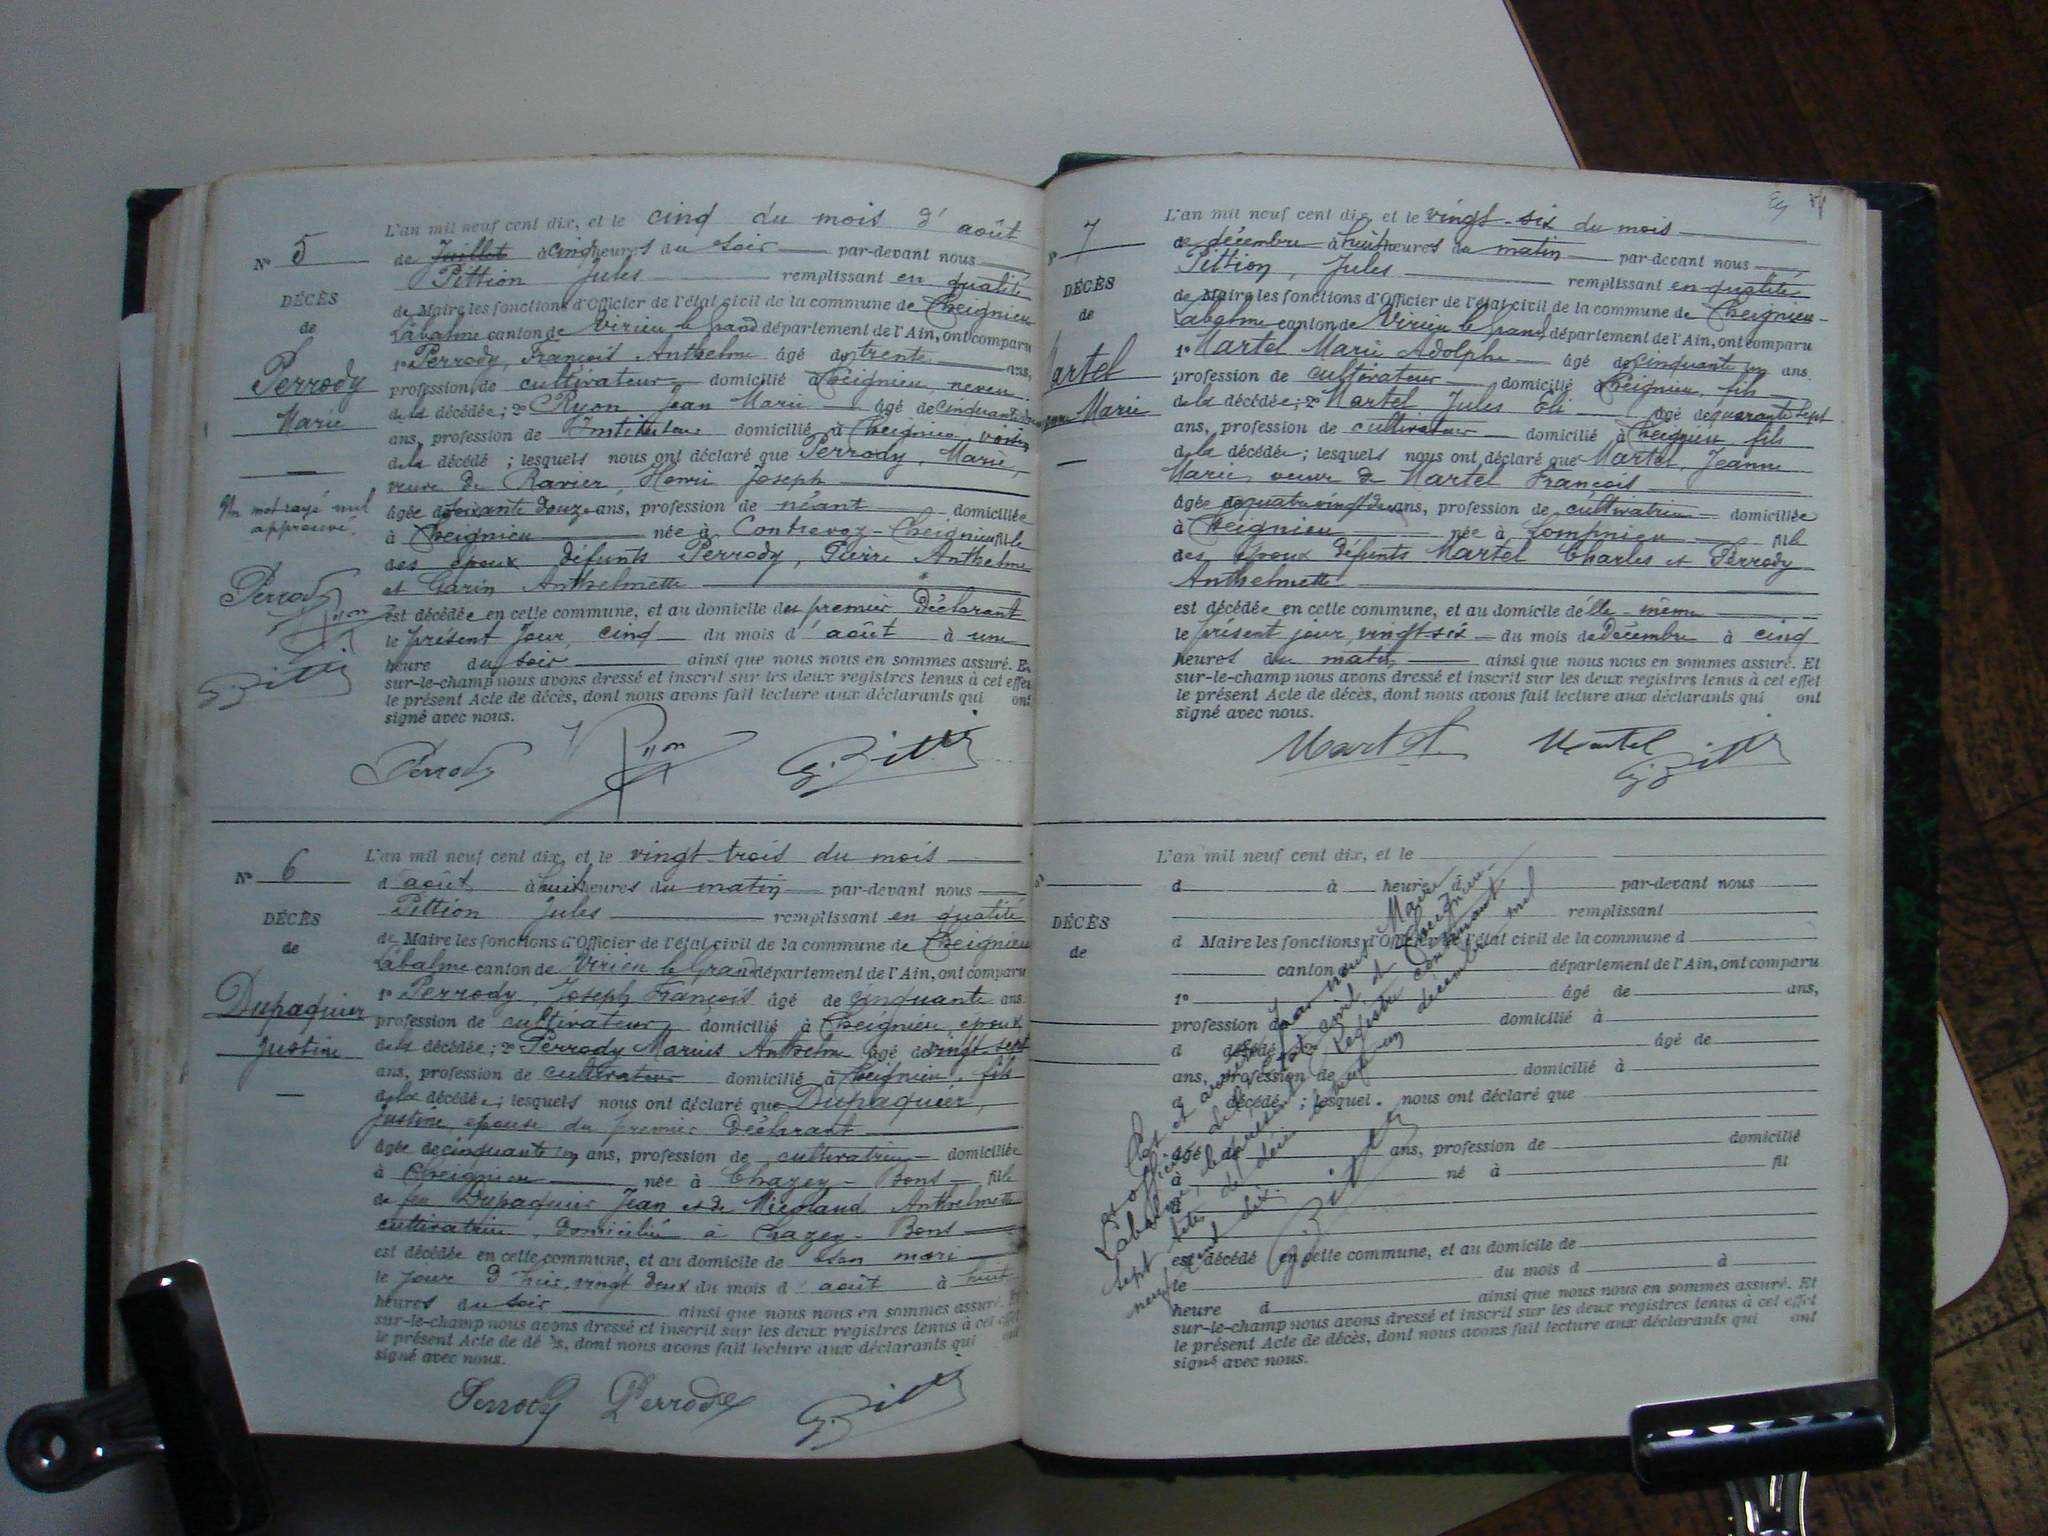 N° 5
DÉCÈS
de
Perrody
Marie
Un mot rayé nul
approuvé.
Perrody
Ryon
L'an mil neuf cent dix, et le cinq du mois d'août
de Juillet à cinq heures du soir par-devant nous
Pittion Jules remplissant en qualité
de Maire les fonctions d'Officier de l'état civil de la commune de Cheignieu
Labalme canton de Virieu le Grand département de l'Ain, ont comparu
1° Perrody, François Anthelme âgé de trente ans,
profession de cultivateur domicilié à Cheignieu, neveu
de la décédée; 2° Ryon Jean Marie âgé de cinquante
ans, profession de Instituteur domicilié à Cheignieu, voisin
de la décédé ; lesquels nous ont déclaré que Perrody, Marie,
veuve de Ravier, Henri Joseph
âgée de soixante douze ans, profession de néant domiciliée
à Cheignieu née à Contrevoz-Cheignieu fille
des époux défunts Perrody, Pierre Anthelme
et Garin Anthelmette
est décédée en cette commune, et au domicile des premier Déclarant
le présent jour, cinq du mois d'août à une
heure du soir ainsi que nous nous en sommes assuré. Et
sur-le-champ nous avons dressé et inscrit sur les deux registres tenus à cet effet
le présent Acte de décès, dont nous avons fait lecture aux déclarants qui ont
signé avec nous.
Perrody Ryon
N° 6
DÉCÈS
de
Dupaquier
Justine
L'an mil neuf cent dix, et le vingt-trois du mois
d'août à huit heures du matin par-devant nous
Pittion Jules remplissant en qualité
de Maire les fonctions d'Officier de l'état civil de la commune de Cheignieu
Labalme canton de Virieu le Grand département de l'Ain, ont comparu
1° Perrody, Joseph François âgé de cinquante ans
profession de cultivateur domicilié à Cheignieu, époux
de la décédée; 2° Perrody Marius Anthelme âgé de vingt-sept
ans, profession de cultivateur domicilié à Cheignieu, fils
de la décédée; lesquels nous ont déclaré que Dupaquier,
Justine, épouse du premier Déclarant
âgée de cinquante un ans, profession de cultivatrice domiciliée
à Cheignieu née à Chazey-Bons fille
de feu Dupaquier Jean et de Nicoland Anthelmette
cultivatrice, domiciliée à Chazey-Bons
est décédée en cette commune, et au domicile de son mari
le jour d'hier, vingt deux du mois d'août à huit
heures du soir ainsi que nous nous en sommes assuré. Et
sur-le-champ nous avons dressé et inscrit sur les deux registres tenus à cet effet
le présent Acte de décès, dont nous avons fait lecture aux déclarants qui ont
signé avec nous.
Perrody Perrody
N° 7
DÉCÈS
de
Martel
Jeanne Marie
L'an mil neuf cent dix, et le vingt-six du mois
de décembre à huit heures du matin par-devant nous
Pittion, Jules remplissant en qualité
de Maire les fonctions d'Officier de l'état civil de la commune de Cheignieu-
Labalme canton de Virieu le Grand département de l'Ain, ont comparu
1° Martel Marie Adolphe âgé de cinquante un ans.
profession de cultivateur domicilié à Cheignieu, fils
de la décédée; 2° Martel Jules Eli âgé de quarante sept
ans, profession de cultivateur domicilié à Cheignieu fils
de la décédée; lesquels nous ont déclaré que Martel, Jeanne
Marie, veuve de Martel François
âgée de quatre vingt deux ans, profession de cultivatrice domiciliée
à Cheignieu née à Lompnieu fille
des époux défunts Martel Charles et Perrody
Anthelmette
est décédée en cette commune, et au domicile d'elle-même
le présent jour, vingt-six du mois de Décembre à cinq
heures du matin ainsi que nous nous en sommes assuré. Et
sur-le-champ nous avons dressé et inscrit sur les deux registres tenus à cet effet
le présent Acte de décès, dont nous avons fait lecture aux déclarants qui ont
signé avec nous.
Martel Martel
DÉCÈS
de
L'an mil neuf cent dix, et le
d à heure d par-devant nous
remplissant
d Maire les fonctions d'Officier de l'état civil de la commune d
canton département de l'Ain, ont comparu
1° âgé de ans,
profession de domicilié à
d décédé âgé de
ans, profession de domicilié à
d décédé ; lesquel . nous ont déclaré que
âgé de ans, profession de domicilié
à né à fil
est décédé en cette commune, et au domicile de
le du mois d à
heure d ainsi que nous nous en sommes assuré. Et
sur-le-champ nous avons dressé et inscrit sur les deux registres tenus à cet effet
le présent Acte de décès, dont nous avons fait lecture aux déclarants qui ont
signé avec nous.
Clos et arrêté par nous, Maire
et officier de l'état civil de Cheignieu-
Labalme, le présent Registre contenant
sept actes de décès le trente-un décembre mil
neuf cent dix.